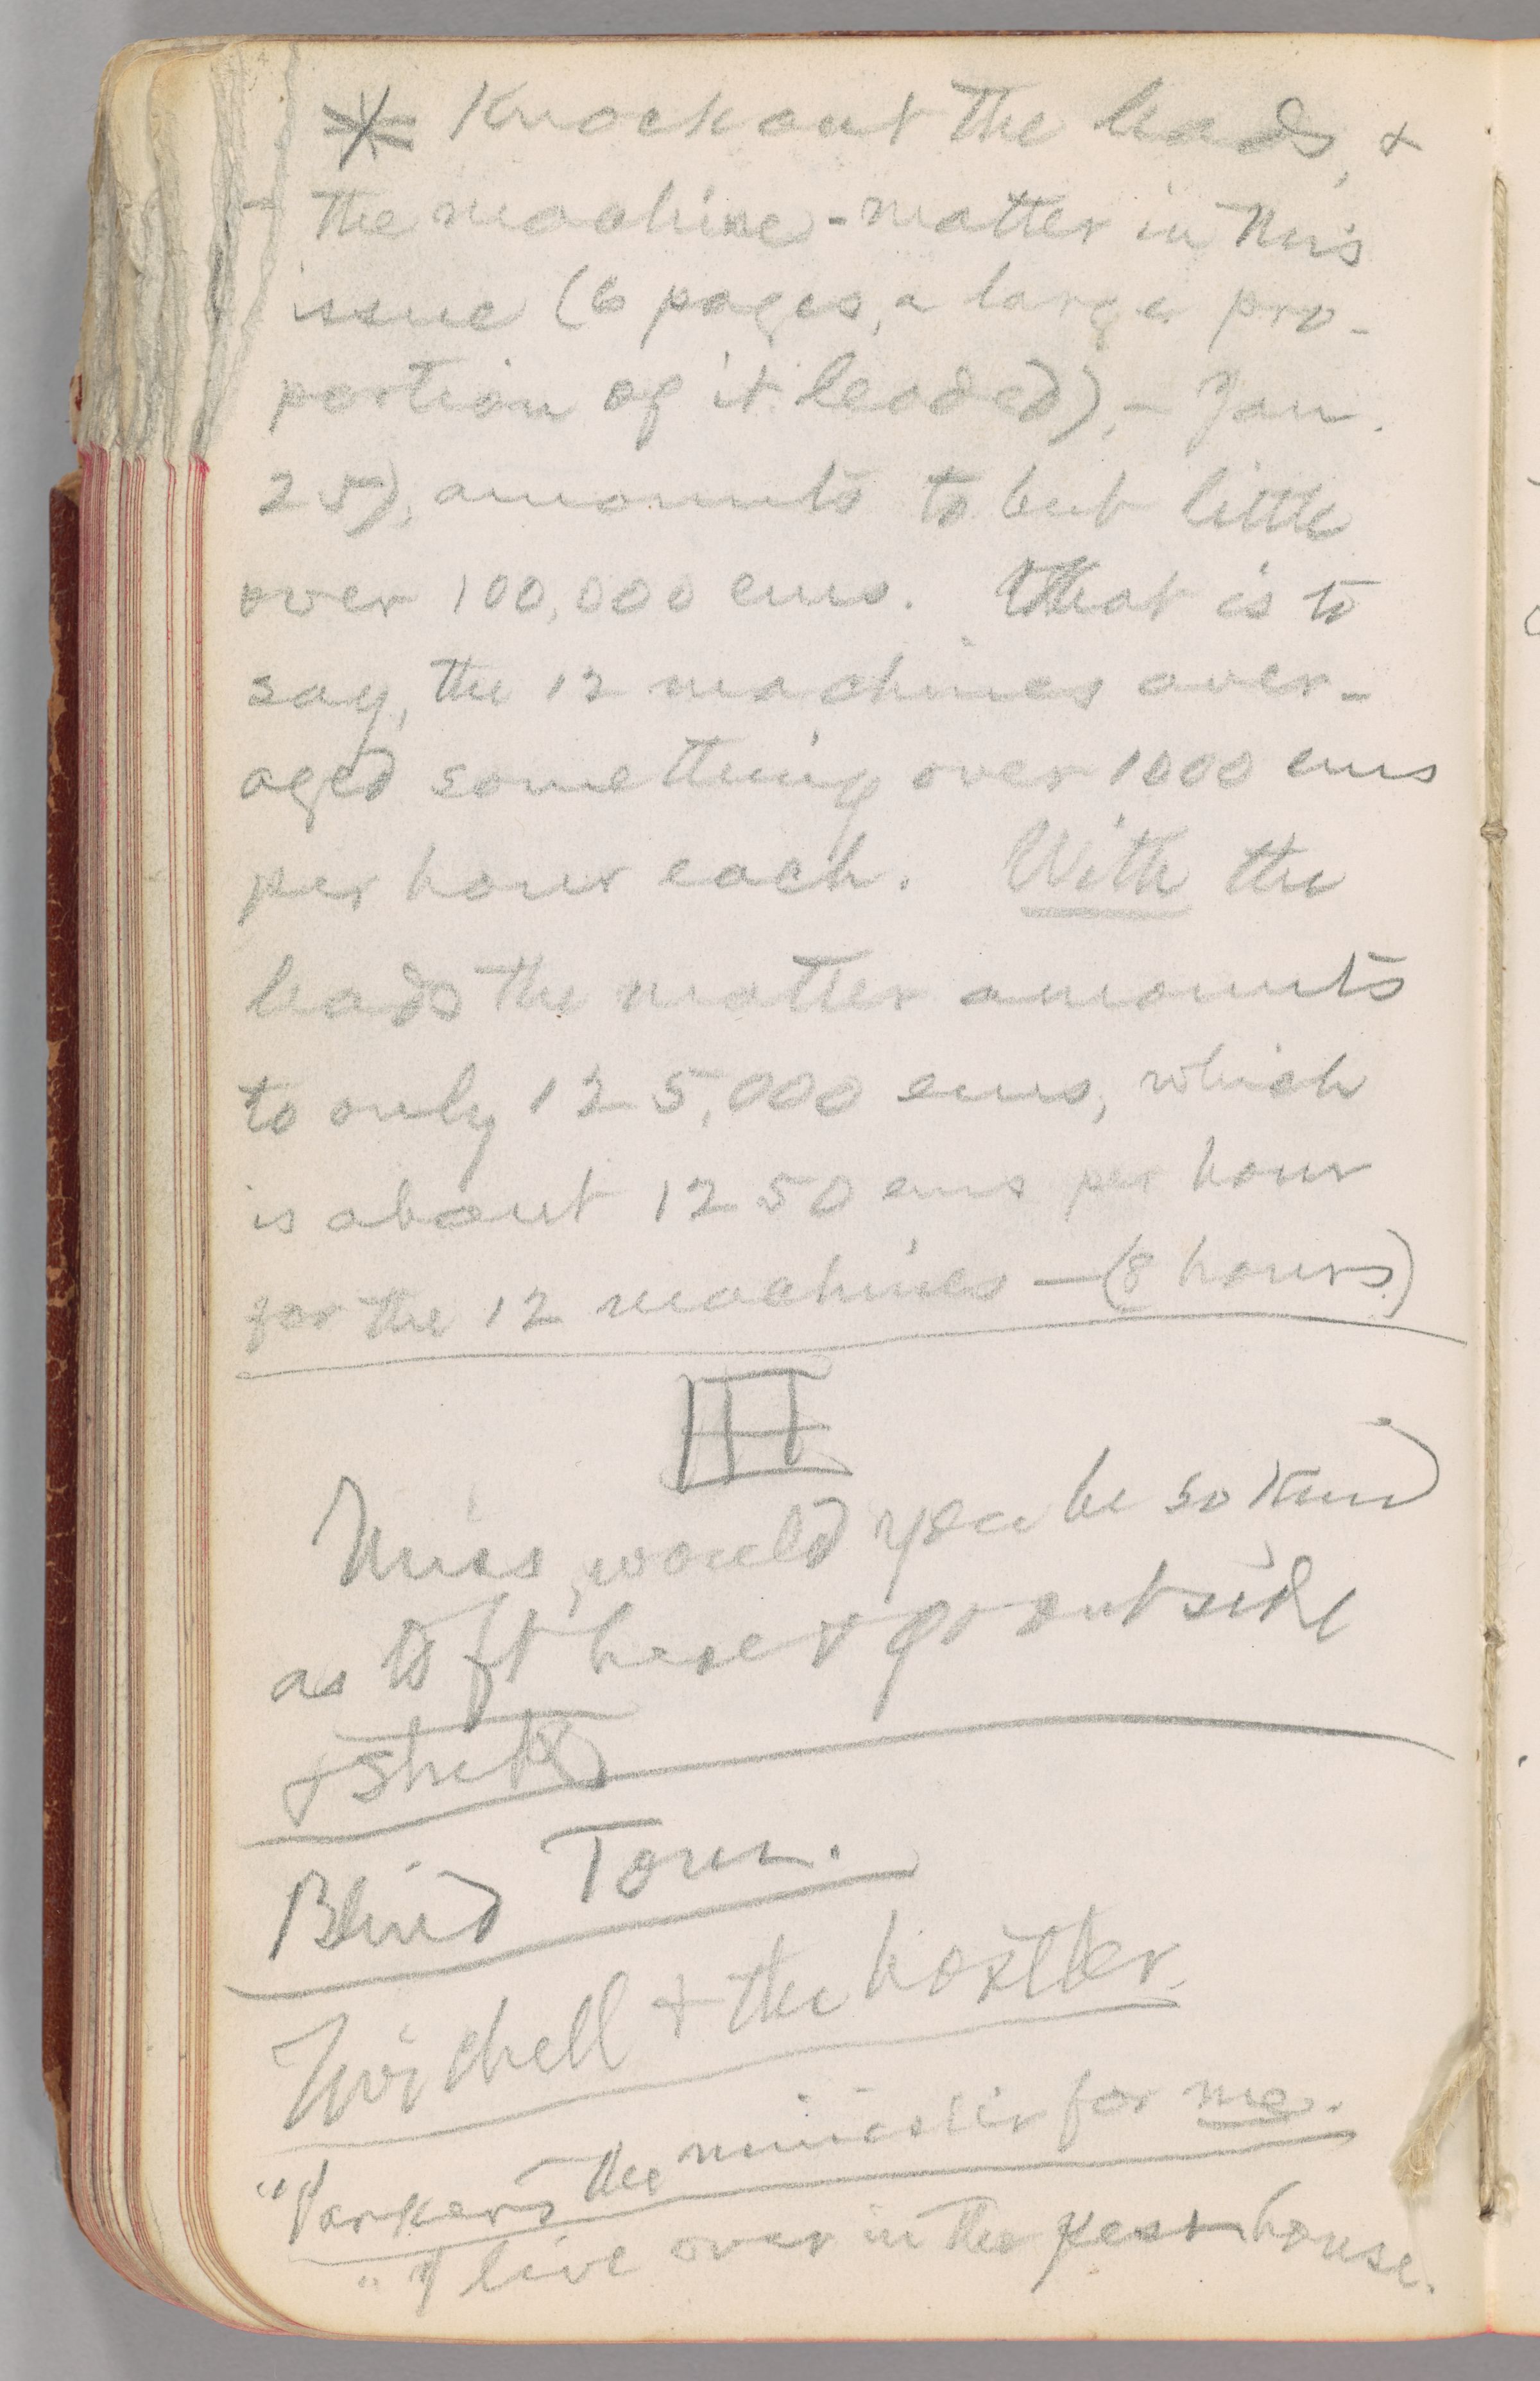 * Knock out the leads, &
the machine-matter in this
issue (6 pages, a large pro-
portion of it leaded), – Jan.
25), amounts to but little
over 100,000 ems. That is to
say, the 12 machines aver-
aged something over 1000 ems
per hour each. With the
leads the matter amounts
to only 125,000 ems, which
is about 1250 ems per hour
for the 12 machines — (8 hours)
III
Miss, would you be so kind
as to ft here & go outside
&
Blind Tom.
Twichell & the hostler.
"Parker's the minister for me.
"I live over in the pest-house.